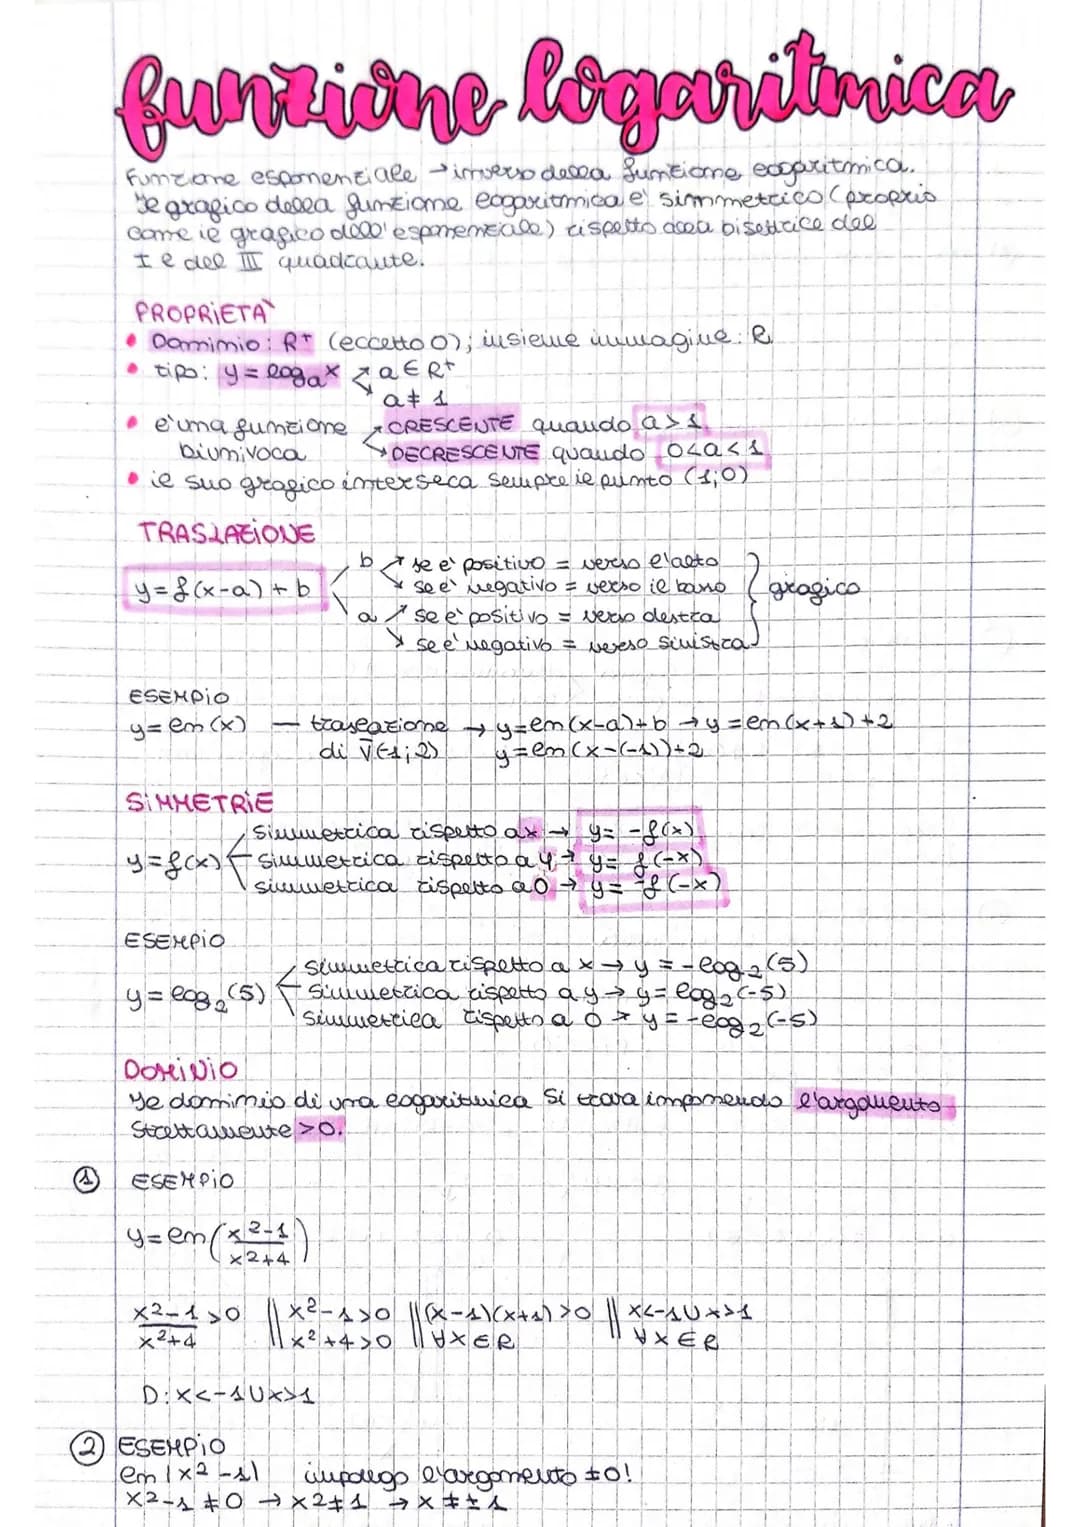 funzione logaritmica
Funzione esponenziale → inverso della funzione logaritmica.
Il grafico della funzione logaritmica e' simmetrico (proprio
come il grafico dell'esponenziale) rispetto alla bisettrice del
I e del III quadrante.
PROPRIETA'
• Dominio: R⁺ (eccetto 0); insieme immagine: R
• tipo: y = logₐx ↗ a ∈ R⁺
↘ a ≠ 1
• e' una funzione ↗ CRESCENTE quando a > 1
biunivoca ↘ DECRESCENTE quando 0<a<1
• il suo grafico interseca sempre il punto (1;0)
TRASLAZIONE
b ↗ se e' positivo = verso l'alto
y = f(x-a) + b ↘ se e' negativo = verso il basso } grafico
a ↗ se e' positivo = verso destra
↘ se e' negativo = verso sinistra
ESEMPIO
y = ln(x) — traslazione → y=ln(x-a)+b → y=ln(x+1)+2
di v̅(-1;2) y=ln(x-(-1))+2
SIMMETRIE
Simmetrica rispetto a x → y = -f(x)
y = f(x) ← Simmetrica rispetto a y → y = f(-x)
simmetrica rispetto a O → y = -f(-x)
ESEMPIO
simmetrica rispetto a x → y = -log₂(5)
y = log₂(5) ← Simmetrica rispetto a y → y = log₂(-5)
Simmetrica rispetto a O → y = -log₂(-5)
DOMINIO
Il dominio di una logaritmica si trova imponendo l'argomento
strettamente >0.
① ESEMPIO
y = ln(x²-1 / x²+4)
x²-1 / x²+4 >0 || x²-1>0 || (x-1)(x+1)>0 || x<-1 U x>1
|| x²+4>0 || ∀x∈R || ∀x∈R
D: x<-1 U x>1
② ESEMPIO
ln|x²-1| impongo l'argomento ≠0!
x²-1≠0 → x²≠1 → x≠±1